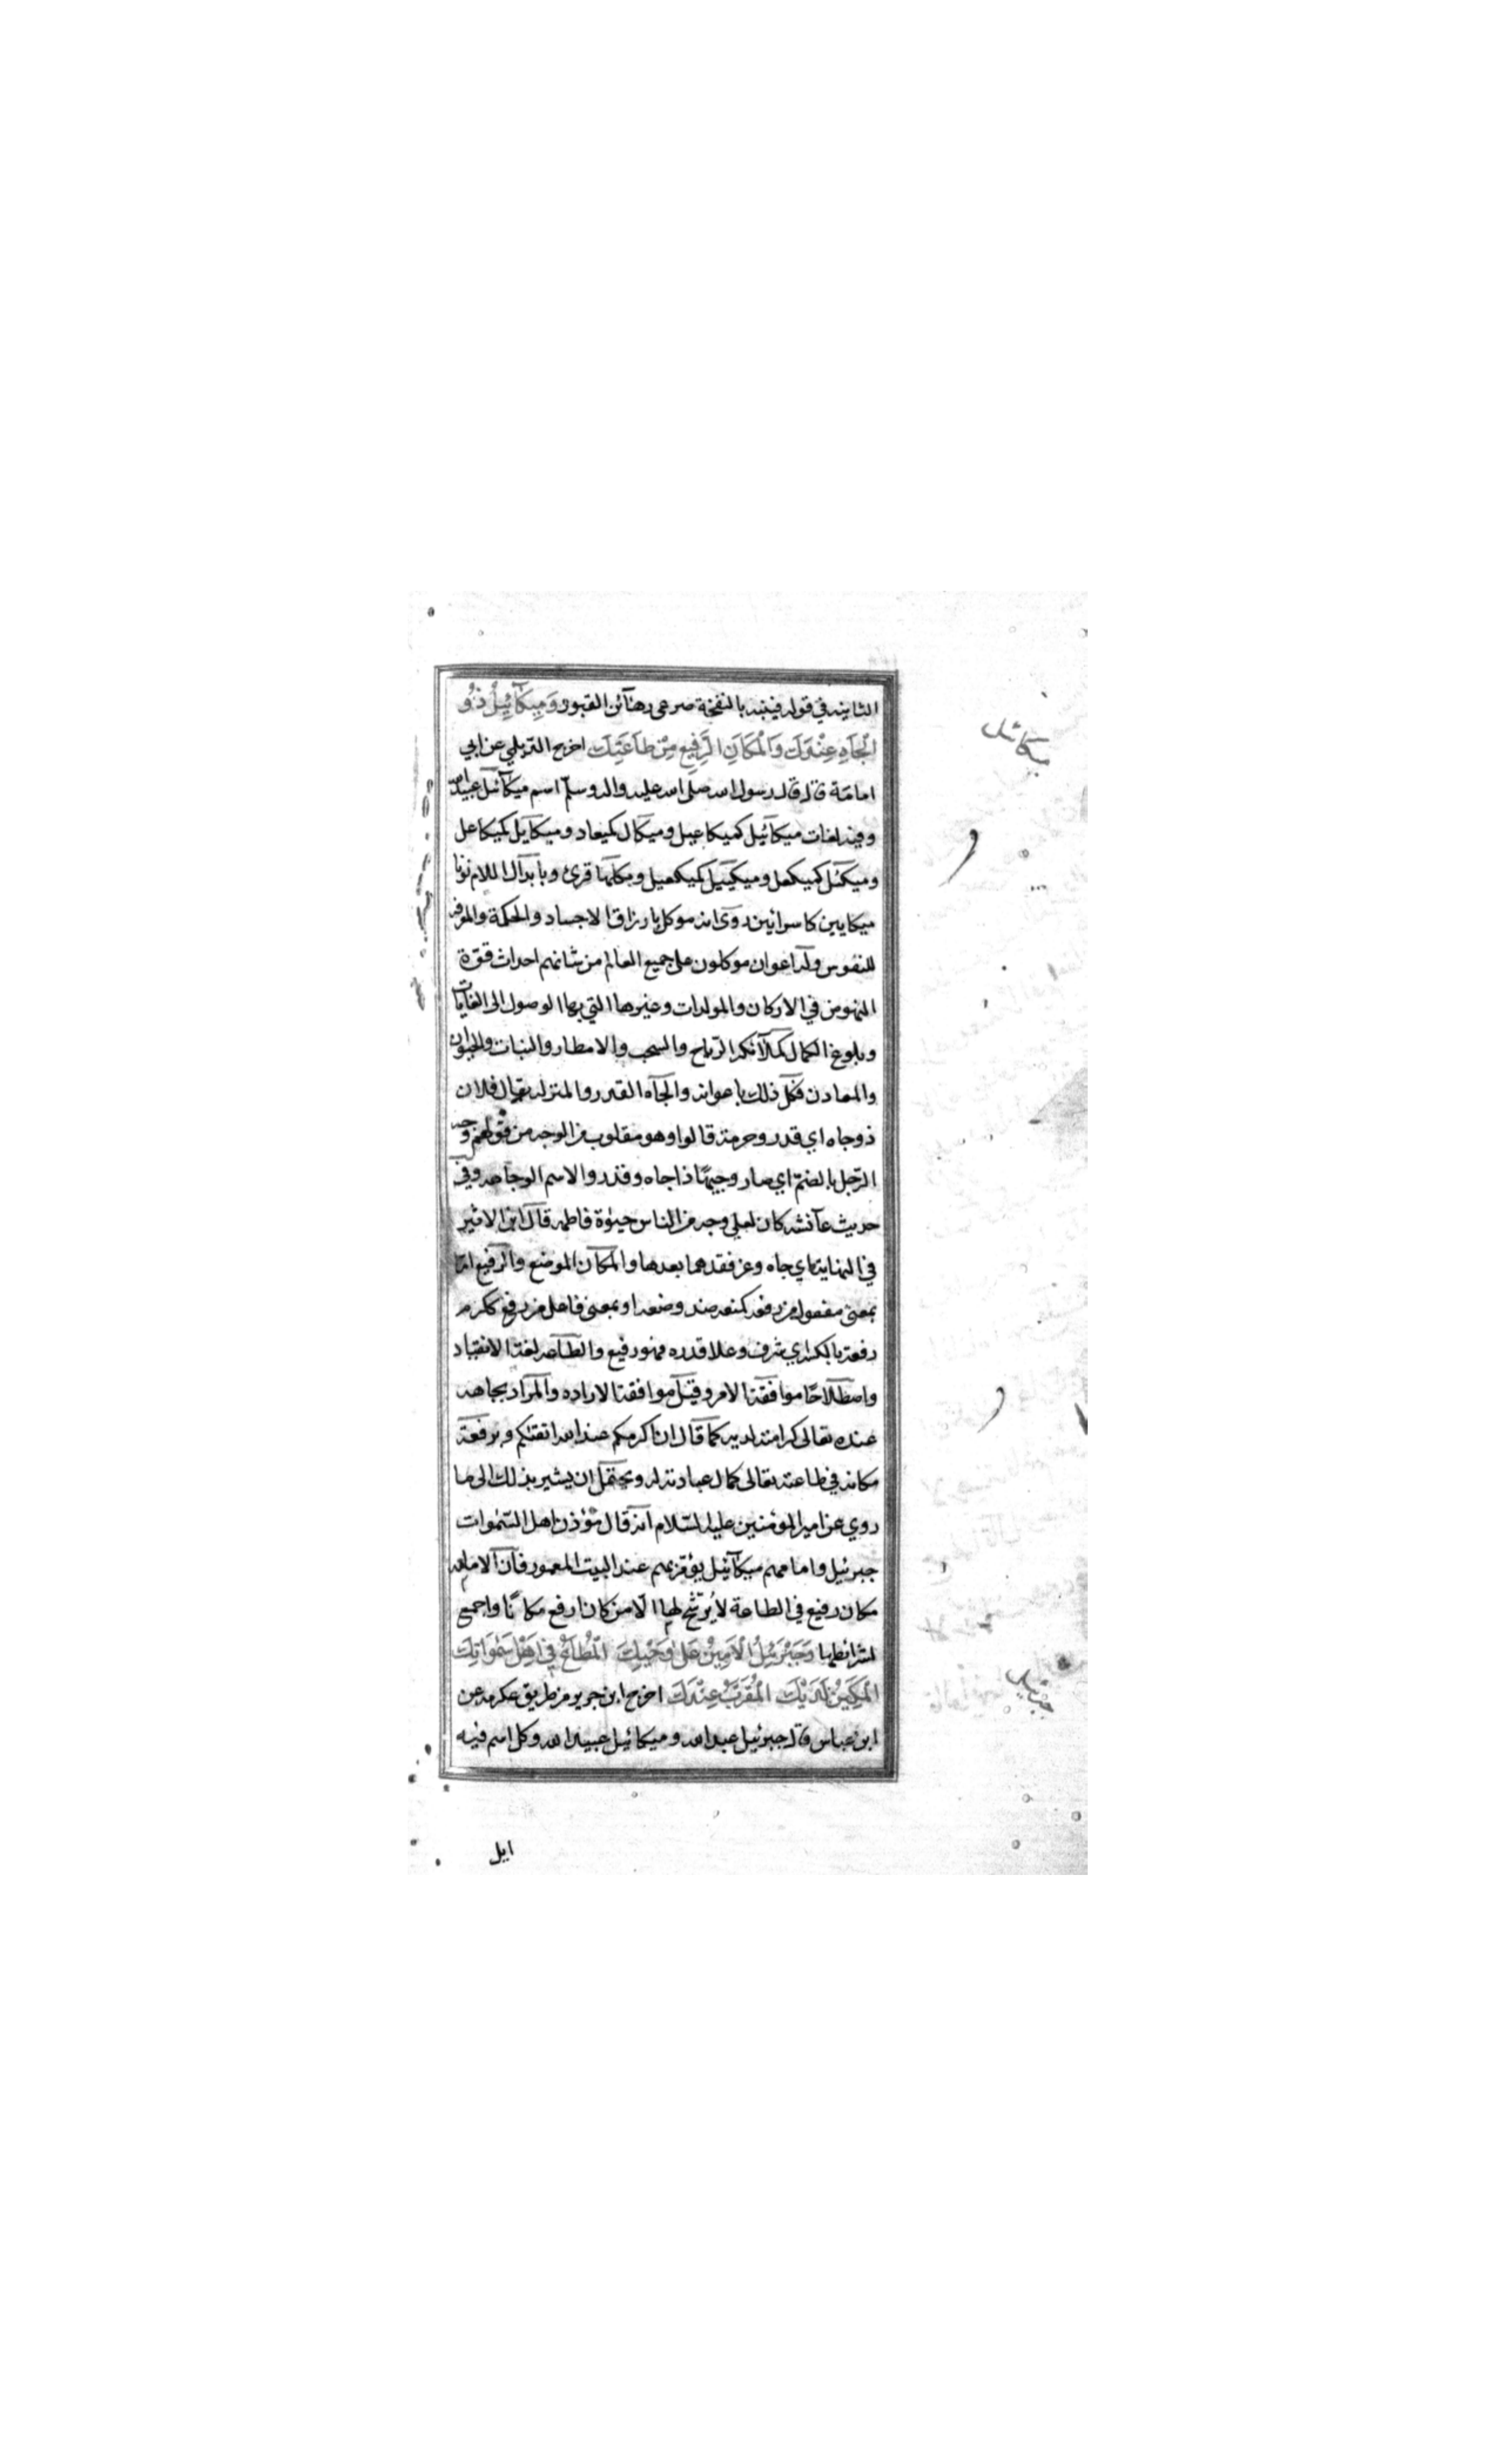 الثانيه في قوله فينبه بالنفخة صرعى رهآئن القبور وَمِيكَآئِيلُ ذُو
الْجَاهِ عِنْدَكَ وَالْمَكَانِ الرَّفِيعِ مِنْ طَاعَتِكَ اخرج الديلمي عن ابي
امامة قال قال رسول الله صلى الله عليه واله وسلم اسم ميكآئيل عبيد الله
وفيه لغات ميكآئيل كميكاعيل وميكال كميعاد وميكآيل كميكاعل
وميكئل كميكعل وميكئيل كميكعيل وبكلها قرئ وبابدال اللام نونا
ميكايين كاسرائين روى انه موكل بارزاق الاجساد والحكمة والمعرفه
للنفوس وله اعوان موكلون على جميع العالم من شانهم احداث قوة
النهوض في الاركان والمولدات وغيرها التي بها الوصول الى الغايات
وبلوغ الكمال كملآئكه الرياح والسحب والامطار والنبات والحيوان
والمعادن فكل ذلك باعوانه والجآه القدر والمنزله يقال فلان
ذوجاه اي قدر وحرمة قالوا وهو مقلوب من الوجه من قولهم وجه
الرّجل بالضمّ اي صار وجيهًا ذا جاه وقدر والاسم الوجاهه وفي
حديث عآئشه كان لعلي وجه من الناس حيٰوة فاطمه قال ابن الاثير
في النهايه اي جاه وعز فقدهما بعدها والمكان الموضع والرفيع امّا
بمعنى مفعول من رفعه كمنعه ضد وضعه او بمعنى فاعل من رفع ككرم
رفعة بالكسر اي شرف وعلا قدره فهو رفيع والطآعه لغة الانقياد
واصطلاحًا موافقة الامر وقيل موافقة الاراده والمراد بجاهه
عنده تعالى كرامته لديه كما قال ان اكرمكم عند الله اتقٰيكم وبرفعة
مكانه في طاعته تعالى كمال عبادته له ويحتمل ان يشير بذلك الى ما
روي عن امير المؤمنين عليه السّلام انه قال مؤذن اهل السّمٰوات
جبرئيل وامامهم ميكآئيل يؤمهم عند البيت المعمور فان الامامه
مكان رفيع في الطاعة لا يُرشّح لها الّا من كان ارفع مكانًا واجمع
لشرائطها وَجَبْرَئِيلُ الْاَمِينُ عَلٰى وَحْيِكَ الْمُطَاعُ فِي اَهْلِ سَمٰوَاتِكَ
الْمَكِينُ لَدَيْكَ الْمُقَرَّبُ عِنْدَكَ اخرج ابن جرير من طريق عكرمه عن
ابن عباس قال جبرئيل عبد الله وميكائيل عبيد الله وكل اسم فيه
ايل
ميكائيل
جبرئيل